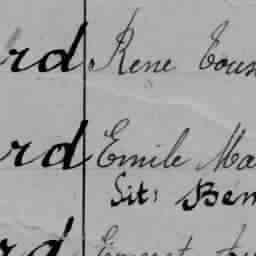 rd Rene Tous
rd Emile Ma
Sit: Ben
rd Ernest